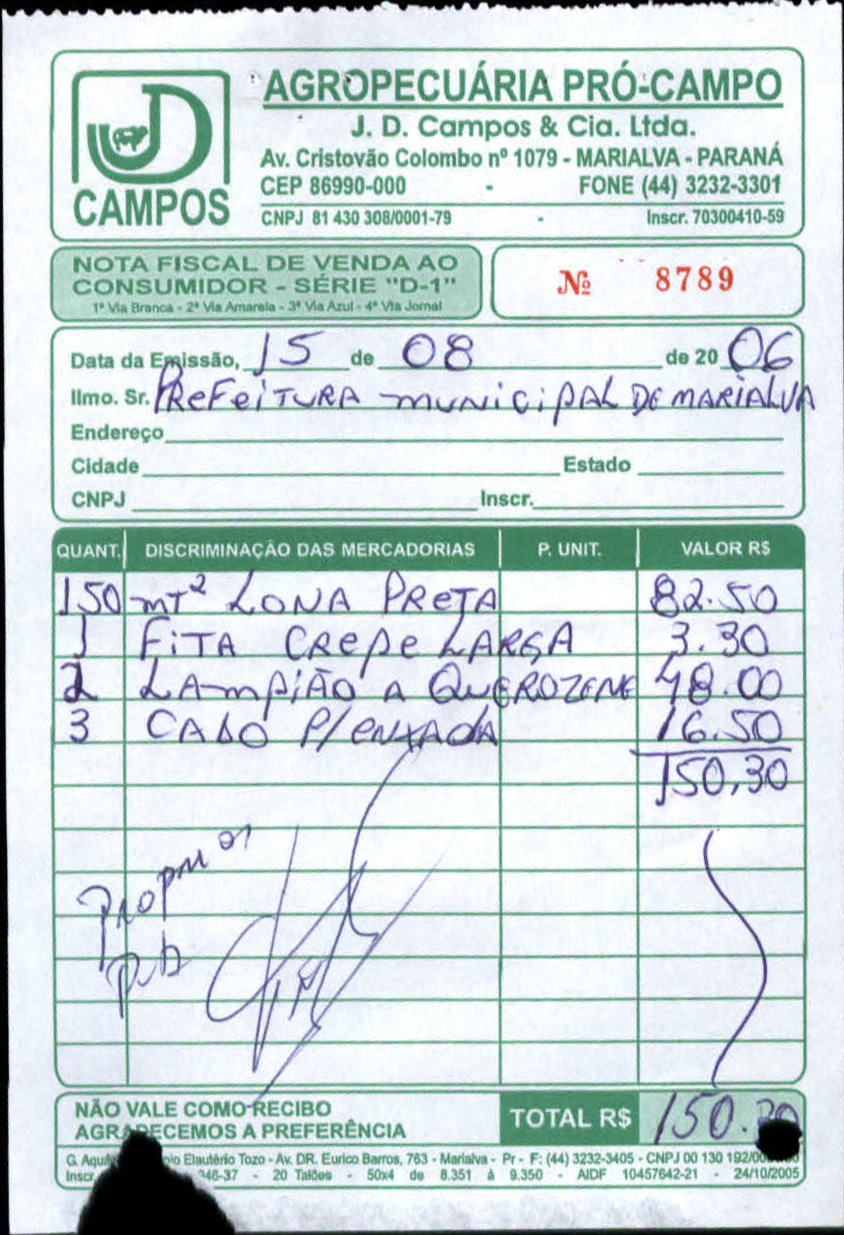 AGROPECUÁRIA PRÓ-CAMPO
J. D. Campos & Cia. Ltda.
Av. Cristovão Colombo nº 1079 - MARIALVA - PARANÁ
CEP 86990-000 - FONE (44) 3232-3301
CNPJ 81 430 308/0001-79 - Inscr. 70300410-59
JD
CAMPOS
NOTA FISCAL DE VENDA AO
CONSUMIDOR - SÉRIE "D-1"
1ª Via Branca - 2ª Via Amarela - 3ª Via Azul - 4ª Via Jornal
Nº 8789
Data da Emissão, 15 de 08 de 20 06
Ilmo. Sr. PREFEITURA MUNICIPAL DE MARIALVA
Endereço
Cidade Estado
CNPJ Inscr.
QUANT. DISCRIMINAÇÃO DAS MERCADORIAS P. UNIT. VALOR R$
150 MT² LONA PRETA 82.50
1 FITA CREPE LARGA 3.30
2 LAMPIÃO A QUEROZENE 48.00
3 CABO P/ENXADA 16.50
150,30
NÃO VALE COMO RECIBO
AGRADECEMOS A PREFERÊNCIA
TOTAL R$ 150.30
Elautério Tozo - Av. DR. Eurico Barros, 763 - Marialva - Pr - F: (44) 3232-3405 - CNPJ 00 130 192/
Inscr. 346-37 - 20 Talões - 50x4 de 8.351 à 9.350 - AIDF 10457642-21 - 24/10/2005